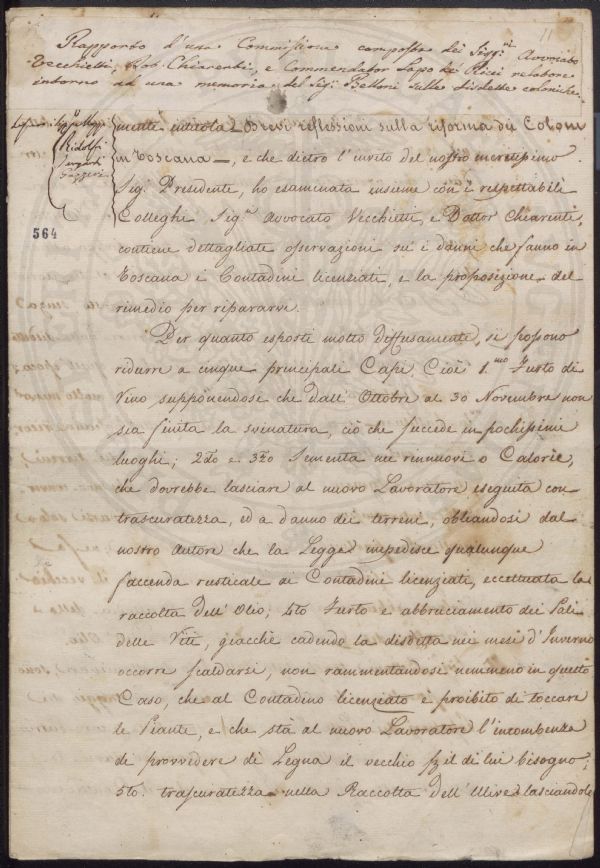 11
Rapporto d'una Commissione composta dei Sigg.ri Avvocato
Vecchietti, Dot. Chiarenti, e Commendator Lapo de Ricci relatore
intorno ad una memoria del Sig. Belloni sulle disdette coloniche.
mente intitola Brevi reflessioni sulla riforma dei Coloni
Ridolfi
in Toscana —, e che dietro l'invito del nostro meritissimo
Sig. Presidente, ho esaminata insieme con i respettabili
Colleghi Sig.ri Avvocato Vecchietti, e Dottor Chiarenti,
564
contiene dettagliate osservazioni su' i danni che fanno in
Toscana i Contadini licenziati, e la proposizione del
rimedio per ripararvi.
Per quanto esposti molto diffusamente, si possono
ridurre a cinque principali Capi Cioè 1.mo Furto di
Vino supponendosi che dall'Ottobre al 30 Novembre non
sia finita la svinatura, ciò che succede in pochissimi
luoghi; 2do e 3zo Sementa nei rinnuovi o Calorìe,
che dovrebbe lasciare al nuovo Lavoratore eseguita con
trascuratezza, ed a danno dei terreni, obliandosi dal
nostro autore che la Legge impedisce qualunque
faccenda rusticale ai Contadini licenziati, eccettuata la
raccolta dell'Olio; 4to Furto e abbruciamento dei Pali
delle Viti, giacchè cadendo la disdetta nei mesi d'Inverno
occorre scaldarsi, non rammentandosi nemmeno in questo
Caso, che al Contadino licenziato è proibito di toccare
le Piante, e che stà al nuovo Lavoratore l'incombenza
di provvedere di Legna il vecchio pel di lui bisogno;
5to. trascuratezza nella Raccolta dell'Ulive lasciandole